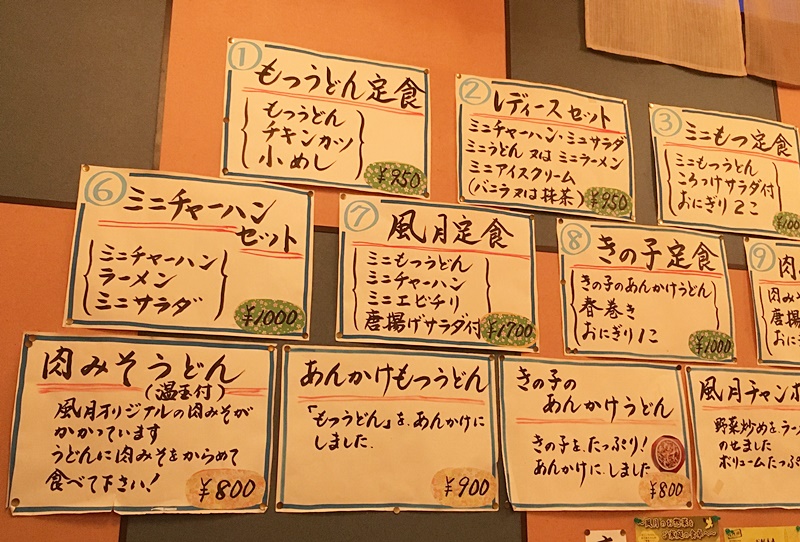 ① もつうどん定食
もつうどん
チキンカツ
小めし
¥950
② レディースセット
ミニチャーハン・ミニサラダ
ミニうどん 又は ミニラーメン
ミニアイスクリーム
(バニラ又は抹茶)
¥950
③ ミニもつ定食
ミニもつうどん
ころっけサラダ付
おにぎり2こ
¥100
⑥ ミニチャーハン
セット
ミニチャーハン
ラーメン
ミニサラダ
¥1000
⑦ 風月定食
ミニもつうどん
ミニチャーハン
ミニエビチリ
唐揚げサラダ付
¥1700
⑧ きの子定食
きの子のあんかけうどん
春巻き
おにぎり1こ
¥1000
⑨ 肉
肉み
唐揚
おに
肉みそうどん
(温玉付)
風月オリジアルの肉みそが
かかっています
うどんに肉みそをからめて
食べて下さい!
¥800
あんかけもつうどん
「もつうどん」を、あんかけに
しました.
¥900
きの子の
あんかけうどん
きの子を、たっぷり!
あんかけに、しました
¥800
風月チャンポ
野菜炒めをラー
のせました
ボリュームたっぷ